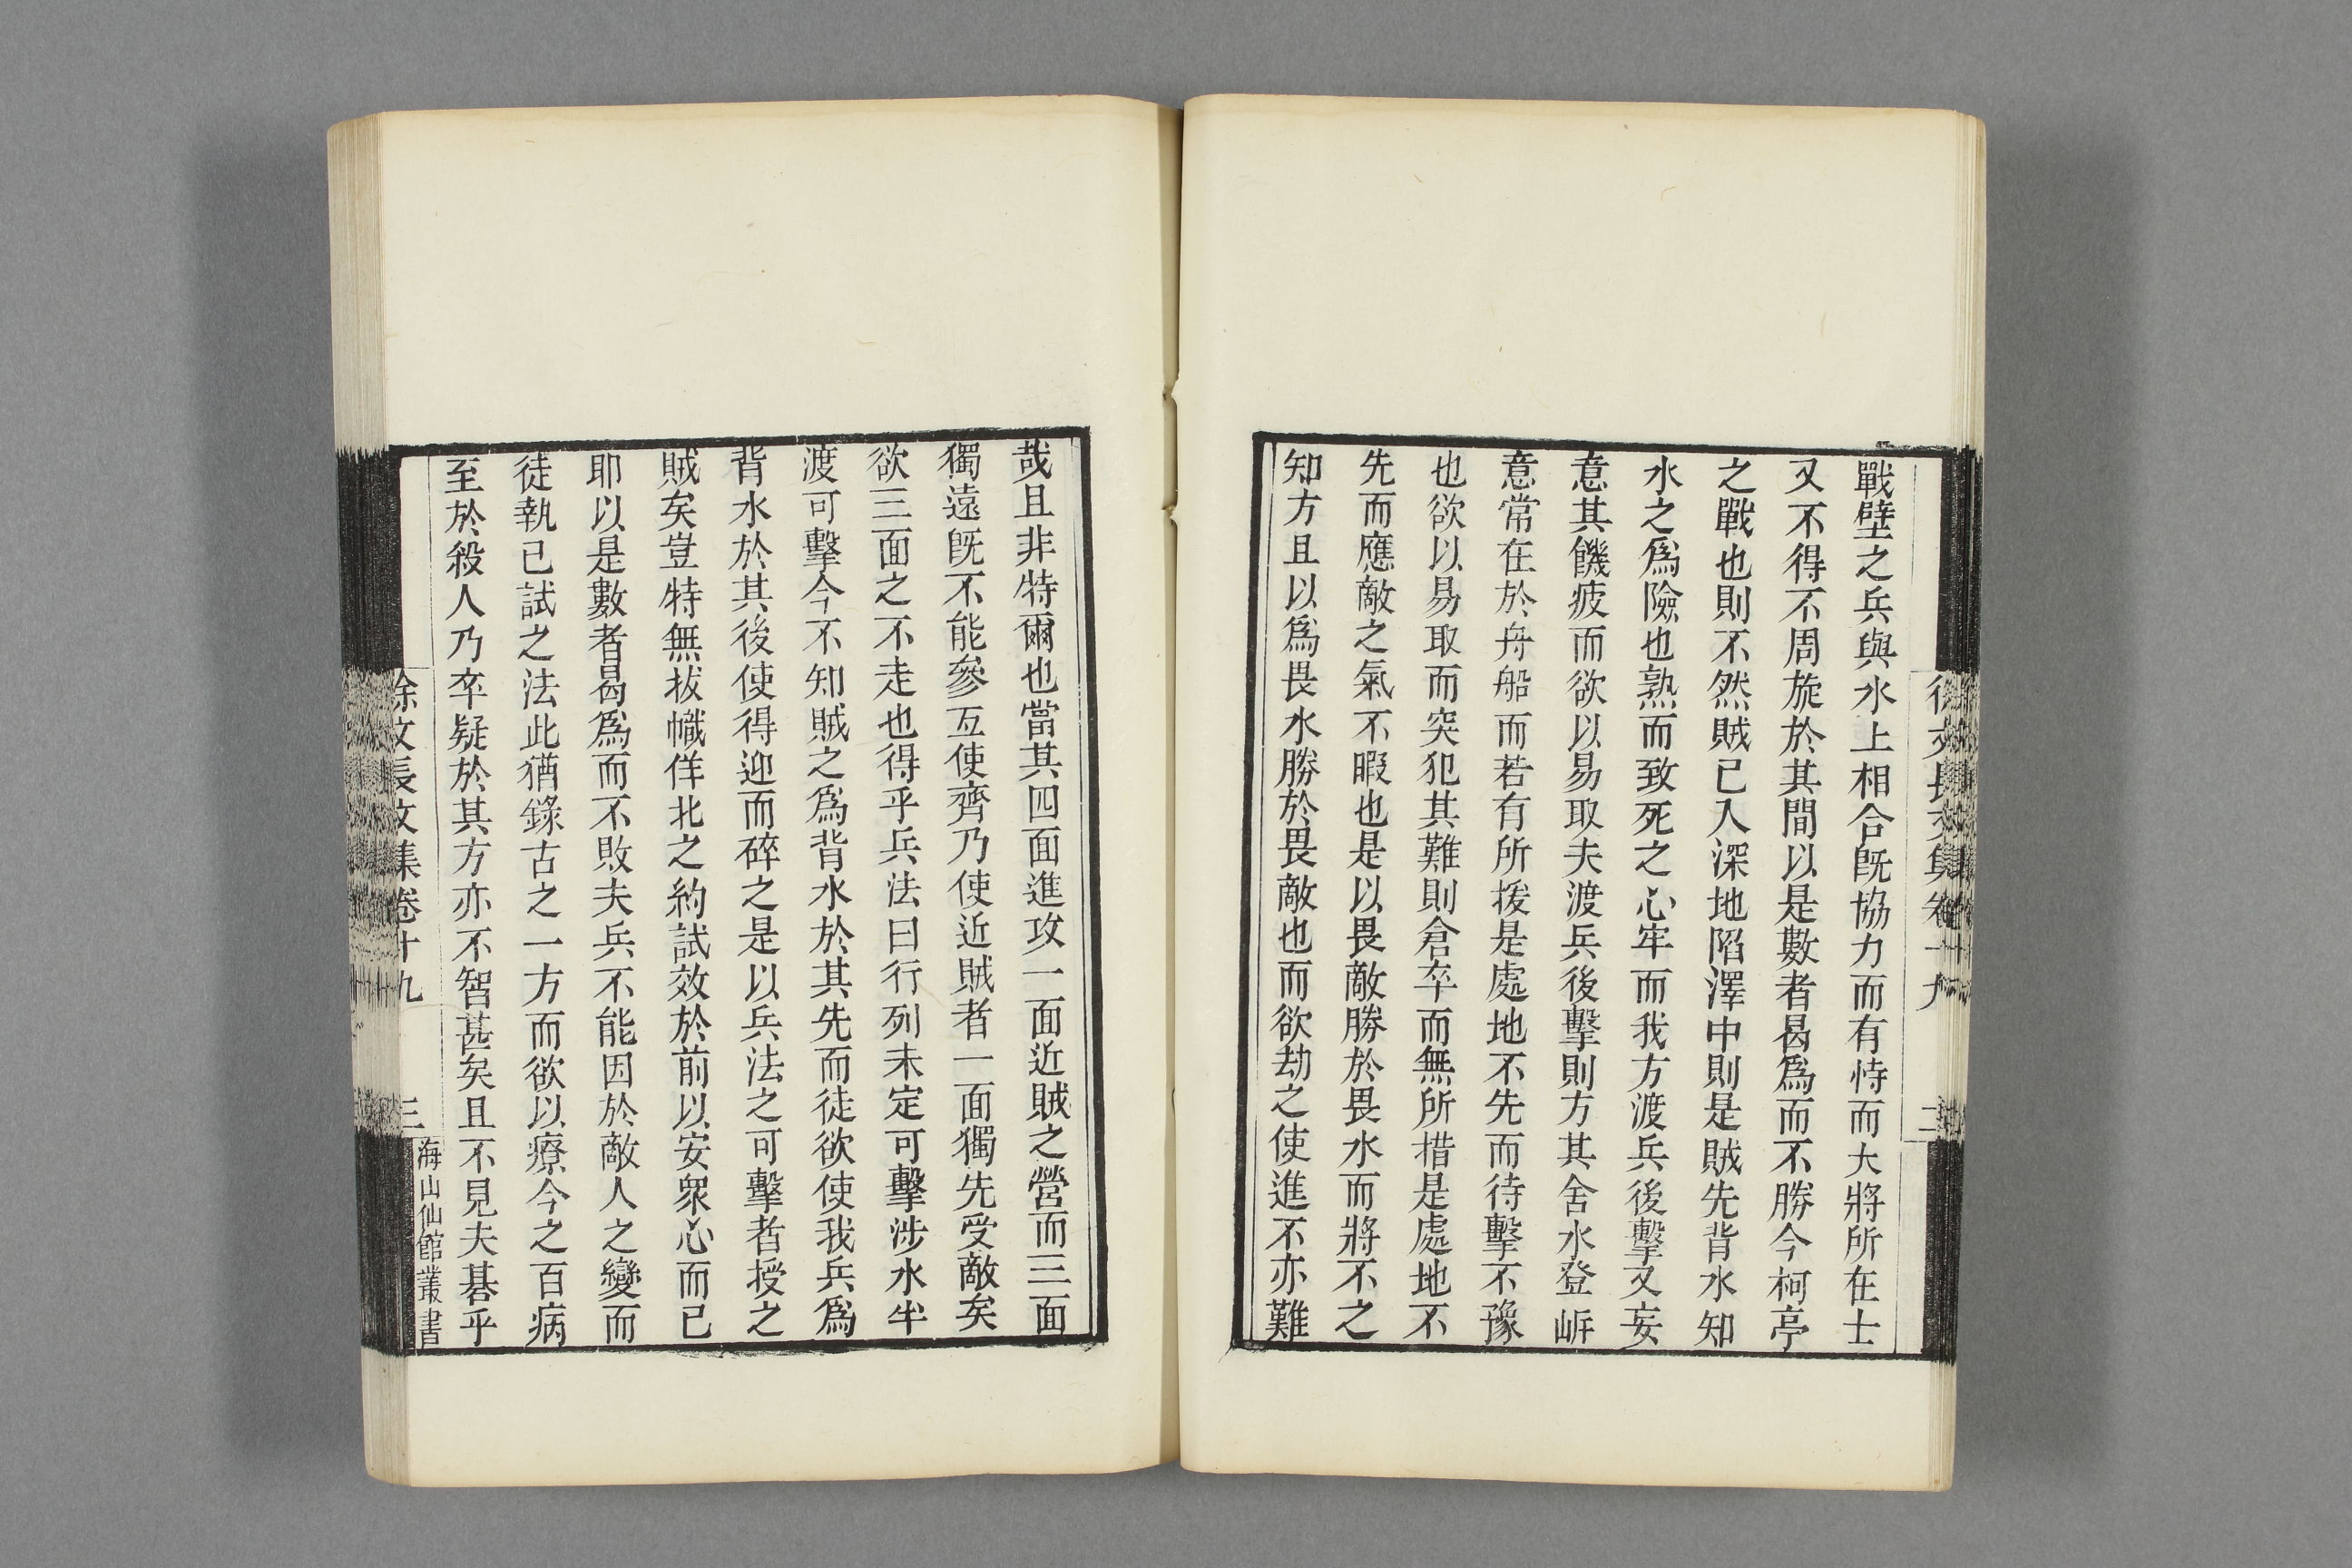 徐文長文集卷十九
二
戰壁之兵與水上相合旣協力而有恃而大將所在士
又不得不周旋於其間以是數者曷爲而不勝今柯亭
之戰也則不然賊已入深地陷澤中則是賊先背水知
水之爲險也熟而致死之心牢而我方渡兵後擊又妄
意其饑疲而欲以易取夫渡兵後擊則方其舍水登岸
意常在於舟船而若有所援是處地不先而待擊不豫
也欲以易取而突犯其難則倉卒而無所措是處地不
先而應敵之氣不暇也是以畏敵勝於畏水而將不之
知方且以爲畏水勝於畏敵也而欲劫之使進不亦難
哉且非特爾也當其四面進攻一面近賊之營而三面
獨遠旣不能參互使齊乃使近賊者一面獨先受敵矣
欲三面之不走也得乎兵法曰行列未定可擊涉水半
渡可擊今不知賊之爲背水於其先而徒欲使我兵爲
背水於其後使得迎而碎之是以兵法之可擊者授之
賊矣豈特無拔幟佯北之約試效於前以安衆心而已
耶以是數者曷爲而不敗夫兵不能因於敵人之變而
徒執已試之法此猶錄古之一方而欲以療今之百病
至於殺人乃卒疑於其方亦不智甚矣且不見夫碁乎
徐文長文集卷十九
三
海山仙館叢書